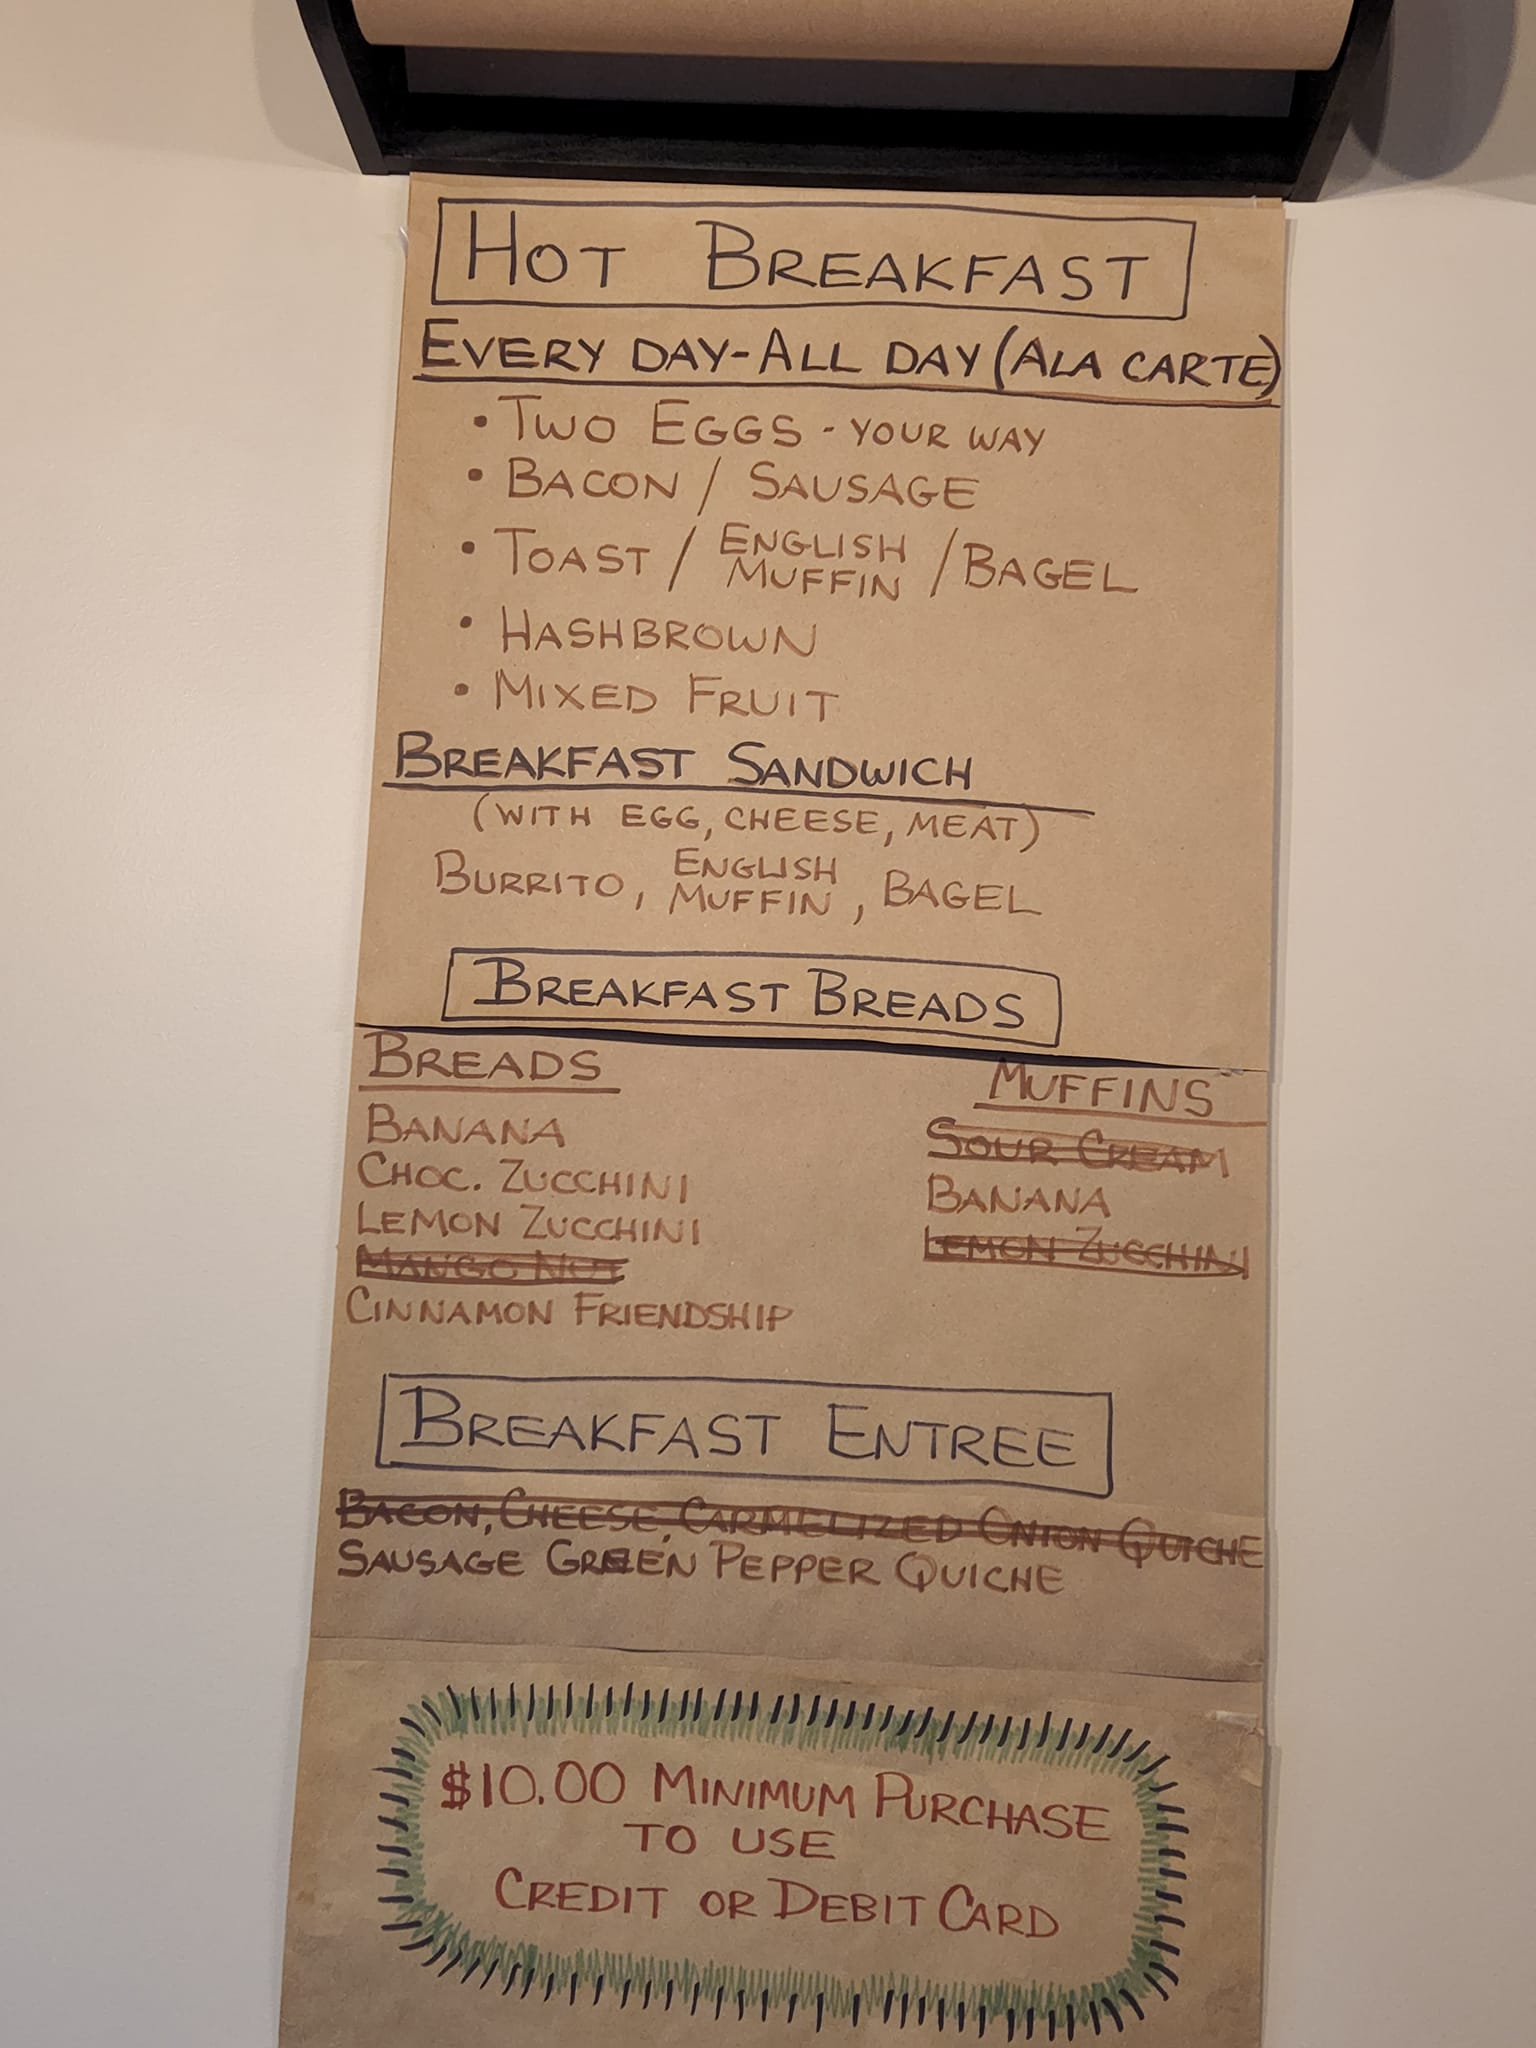 HOT BREAKFAST
EVERY DAY-ALL DAY (ALA CARTE)
• TWO EGGS - YOUR WAY
• BACON / SAUSAGE
• TOAST / ENGLISH MUFFIN / BAGEL
• HASHBROWN
• MIXED FRUIT
BREAKFAST SANDWICH
(WITH EGG, CHEESE, MEAT)
BURRITO, ENGLISH MUFFIN, BAGEL
BREAKFAST BREADS
BREADS
BANANA
CHOC. ZUCCHINI
LEMON ZUCCHINI
MANGO NUT
CINNAMON FRIENDSHIP
MUFFINS
SOUR CREAM
BANANA
LEMON ZUCCHINI
BREAKFAST ENTREE
BACON, CHEESE, CARMELIZED ONION QUICHE
SAUSAGE GREEN PEPPER QUICHE
$10.00 MINIMUM PURCHASE
TO USE
CREDIT OR DEBIT CARD